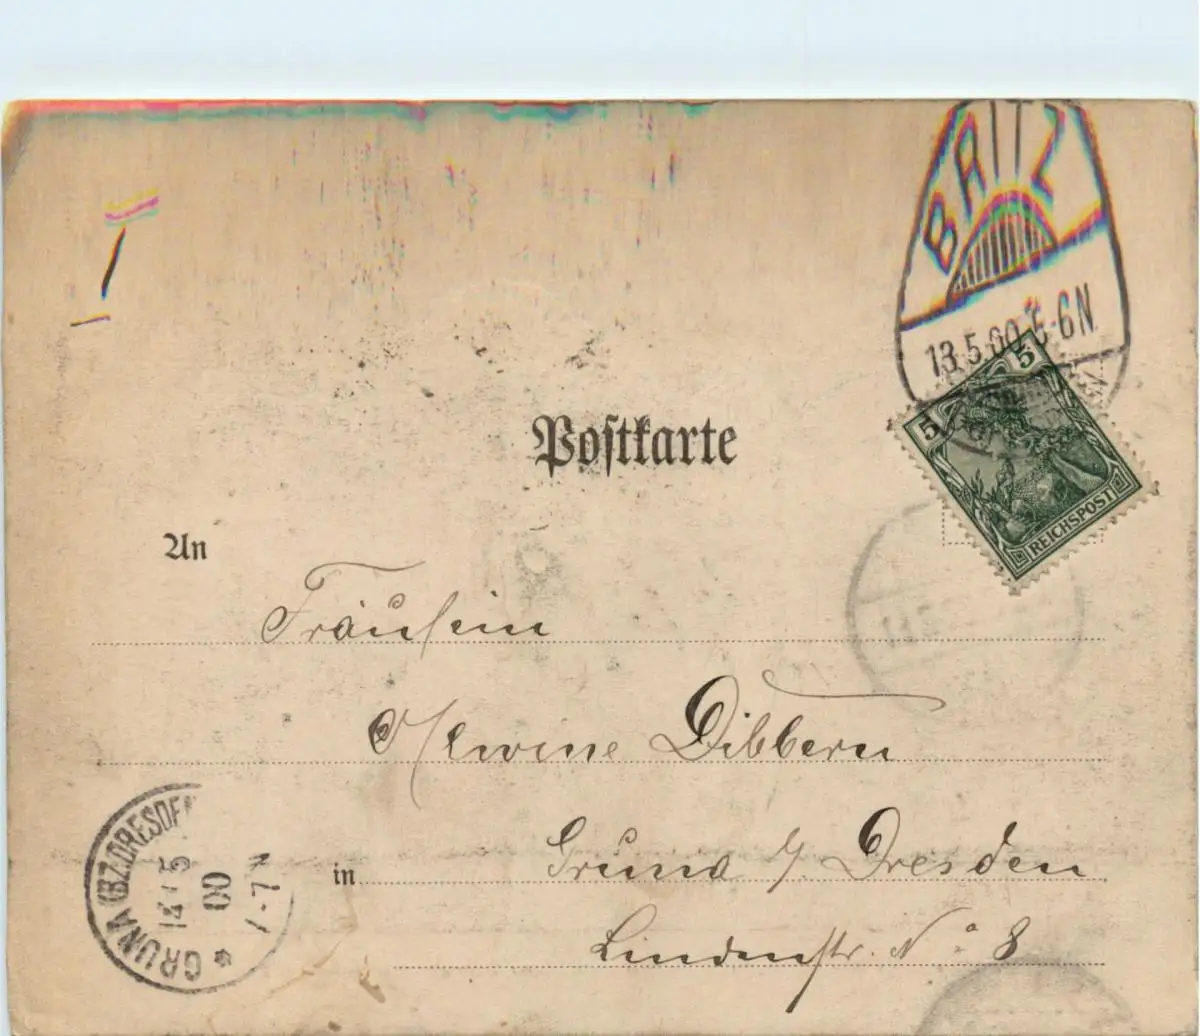 BAITZ
13.5.00 5-6N
5
5
REICHSPOST
Postkarte
An
Fräulein
Alwine Dibbern
in Gruna b/ Dresden
Lindenstr. No 8
GRUNA (BZ. DRESDEN)
14 5
00
7-7N